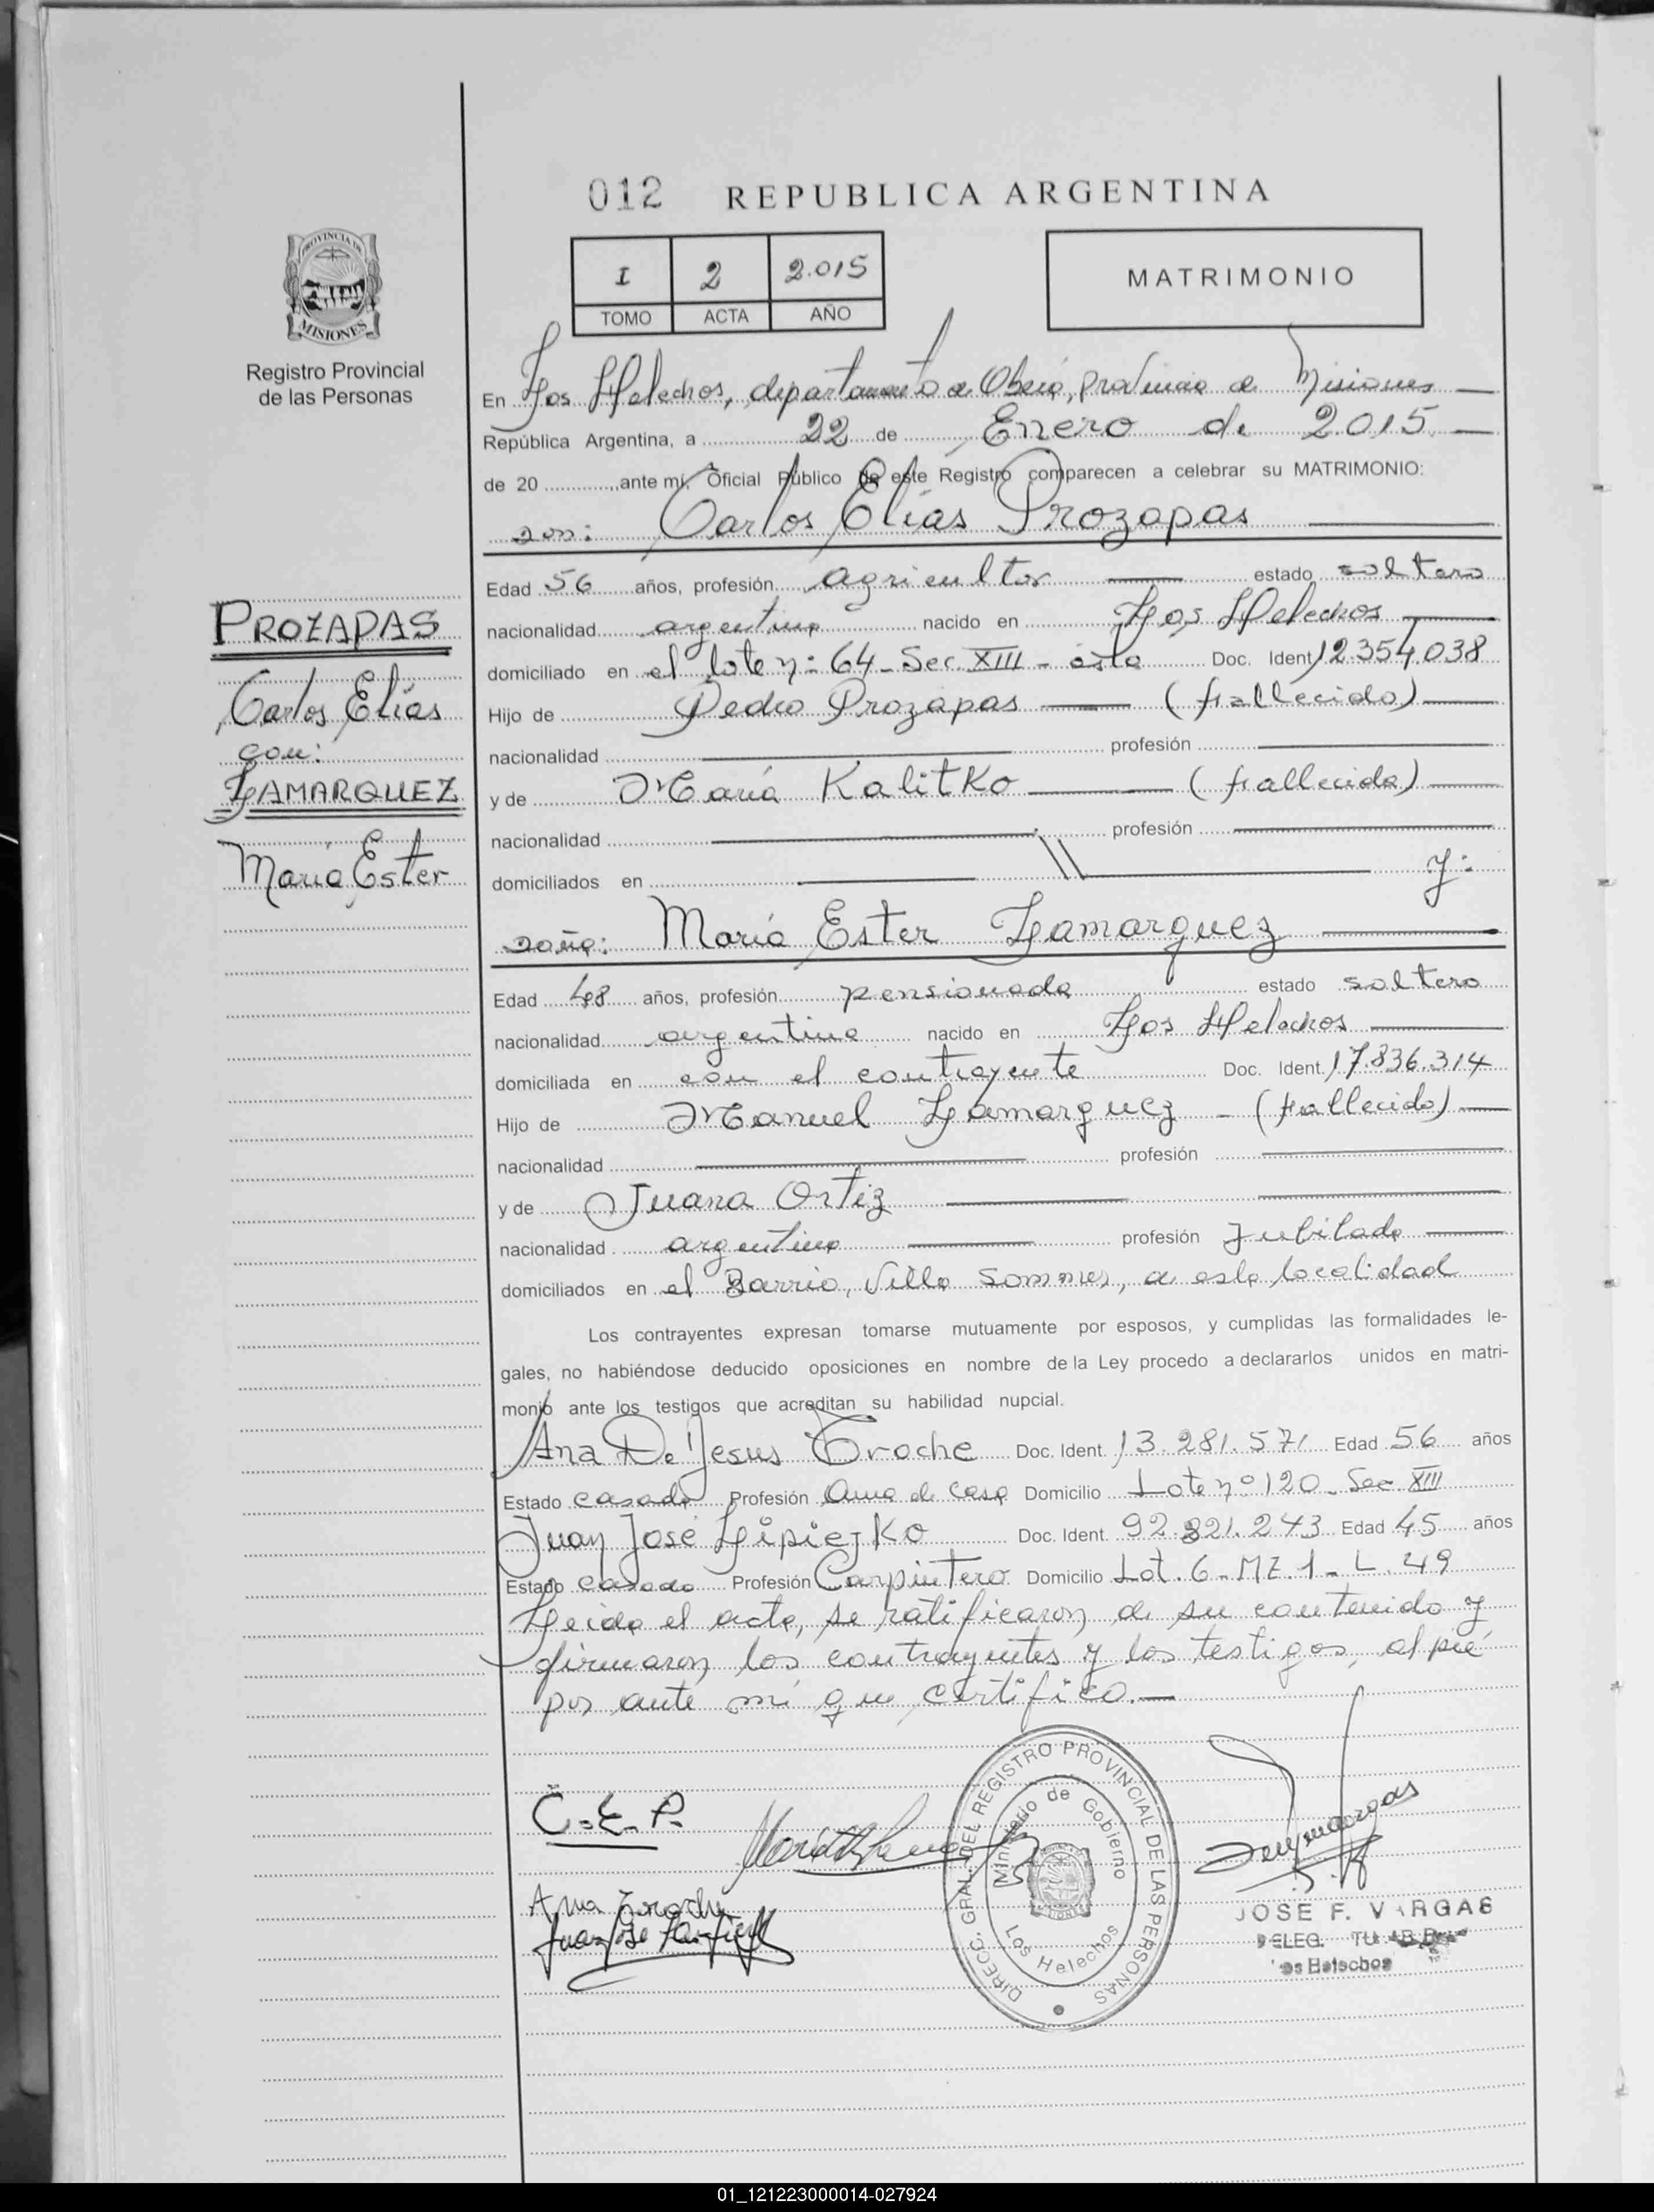 012 REPUBLICA ARGENTINA
PROVINCIA DE
MISIONES
Registro Provincial
de las Personas
I 2 2.015
TOMO ACTA AÑO
MATRIMONIO
En Los Helechos, departamento de Oberá, provincia de Misiones
República Argentina, a 22 de Enero de 2.015
de 20 ante mí, Oficial Público de este Registro comparecen a celebrar su MATRIMONIO:
don: Carlos Elías Prozapas
Edad 56 años, profesión agricultor estado soltero
nacionalidad argentina nacido en Los Helechos
domiciliado en el lote nº 64 - Sec. XIII - Doc. Ident 12.354.038
Hijo de Pedro Prozapas (fallecido)
nacionalidad profesión
y de María Kalitko (fallecida)
nacionalidad profesión
domiciliados en y:
doña: María Ester Lamarquez
Edad 48 años, profesión pensionada estado soltera
nacionalidad argentina nacido en Los Helechos
domiciliada en con el contrayente Doc. Ident. 17.836.314
Hijo de Manuel Lamarquez - (fallecido)
nacionalidad profesión
y de Juana Ortiz
nacionalidad argentina profesión Jubilada
domiciliados en el Barrio, Villa Sommer, de esta localidad
Los contrayentes expresan tomarse mutuamente por esposos, y cumplidas las formalidades le-
gales, no habiéndose deducido oposiciones en nombre de la Ley procedo a declararlos unidos en matri-
monio ante los testigos que acreditan su habilidad nupcial.
Ana De Jesus Troche Doc. Ident. 13.281.571 Edad 56 años
Estado casada Profesión Ama de casa Domicilio Lote nº 120 - Sec XIII
Juan José Lipiejko Doc. Ident. 92.821.243 Edad 45 años
Estado casado Profesión Carpintero Domicilio Lot. 6 - MZ. 1 - L. 49
Leida el acta, se ratificaron de su contenido y
firmaron los contrayentes y los testigos, al pié
por ante mí que certifico.
PROZAPAS
Carlos Elías
con:
LAMARQUEZ
María Ester
C.E.P.
Ana Troche
Juan José
DIRECC. GRAL. DEL REGISTRO PROVINCIAL DE LAS PERSONAS
Ministerio de Gobierno
Los Helechos
JOSE F. VARGAS
DELEG.
Los Helechos
01_121223000014-027924